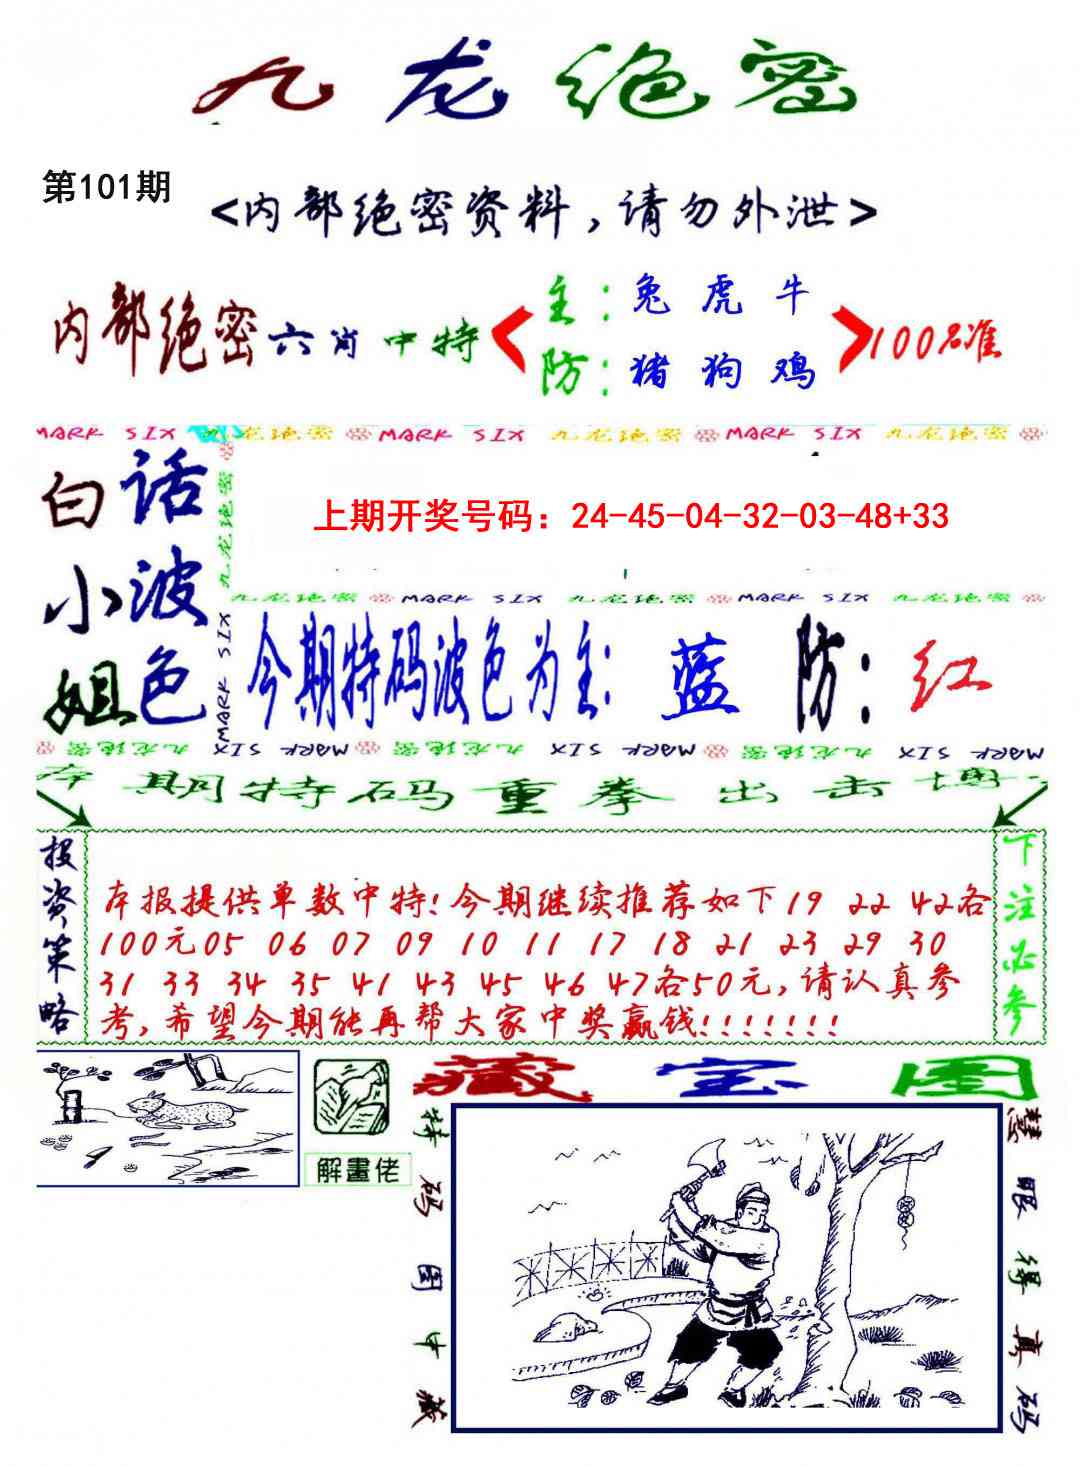 九龙绝密
第101期
<内部绝密资料,请勿外泄>
内部绝密六肖中特
主:兔 虎 牛
防:猪 狗 鸡
100%准
MARK SIX 九龙绝密 MARK SIX 九龙绝密 MARK SIX 九龙绝密
白小姐
话波色
九龙绝密 MARK SIX
上期开奖号码:24-45-04-32-03-48+33
九龙绝密 MARK SIX 九龙绝密 MARK SIX 九龙绝密
今期特码波色为主: 蓝 防: 红
九龙绝密 MARK SIX 九龙绝密 MARK SIX 九龙绝密 MARK SIX
本期特码重拳出击博
投资策略
本报提供单数中特!今期继续推荐如下19 22 42各
100元05 06 07 09 10 11 17 18 21 23 29 30
31 33 34 35 41 43 45 46 47各50元,请认真参
考,希望今期能再帮大家中奖赢钱!!!!!!!
下注必参
解畫佬
藏宝图
特码图中藏
慧眼得真码